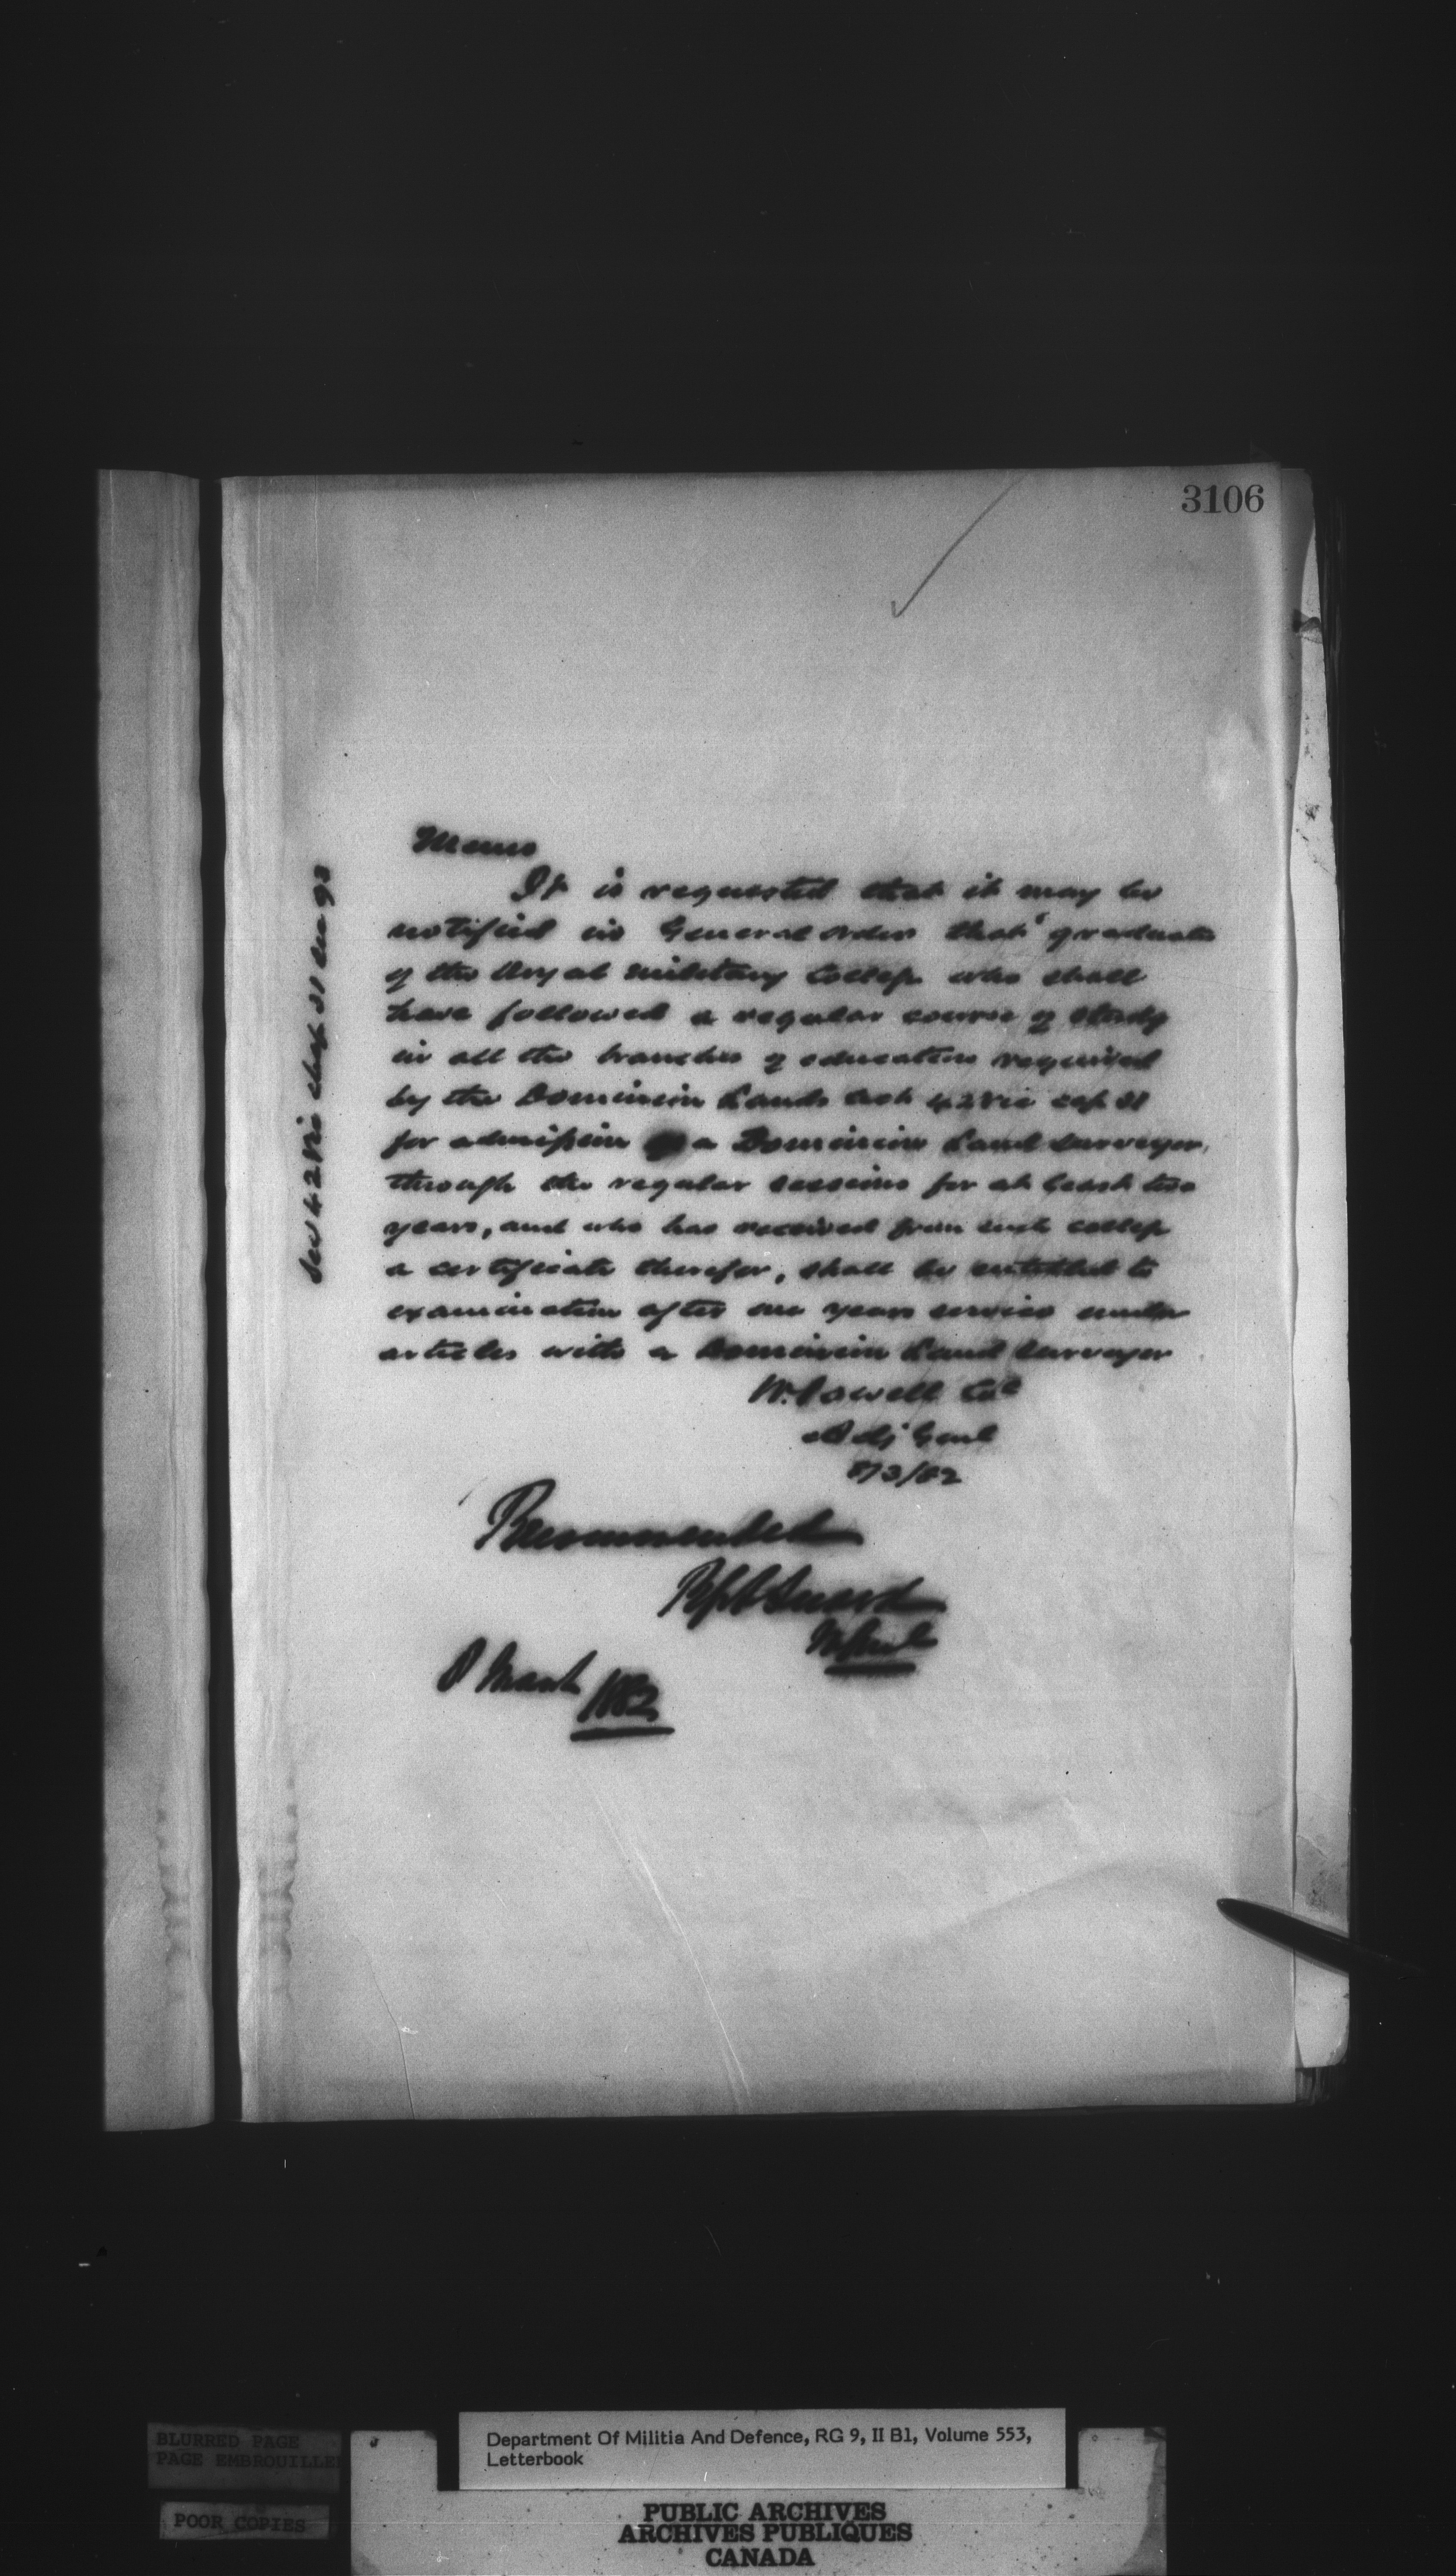 3106
Memo
It is requested that it may be
notified in General orders that graduates
of the Royal Military College who shall
have followed a regular course of study
in all the branches of education required
by the Dominion Lands Act 42 Vic cap 31
for admission a Dominion Land Surveyor,
through the regular sessions for at least two
years, and who has received from such college
a certificate therefor, shall be entitled to
examination after one years service under
articles with a Dominion Land Surveyor
W. Powell Col
Adj Genl
8/3/82
Recommended
M Genl
8 March 1882
42 Vic chap 31
BLURRED PAGE
PAGE EMBROUILLEE
POOR COPIES
Department Of Militia And Defence, RG 9, II B1, Volume 553,
Letterbook
PUBLIC ARCHIVES
ARCHIVES PUBLIQUES
CANADA